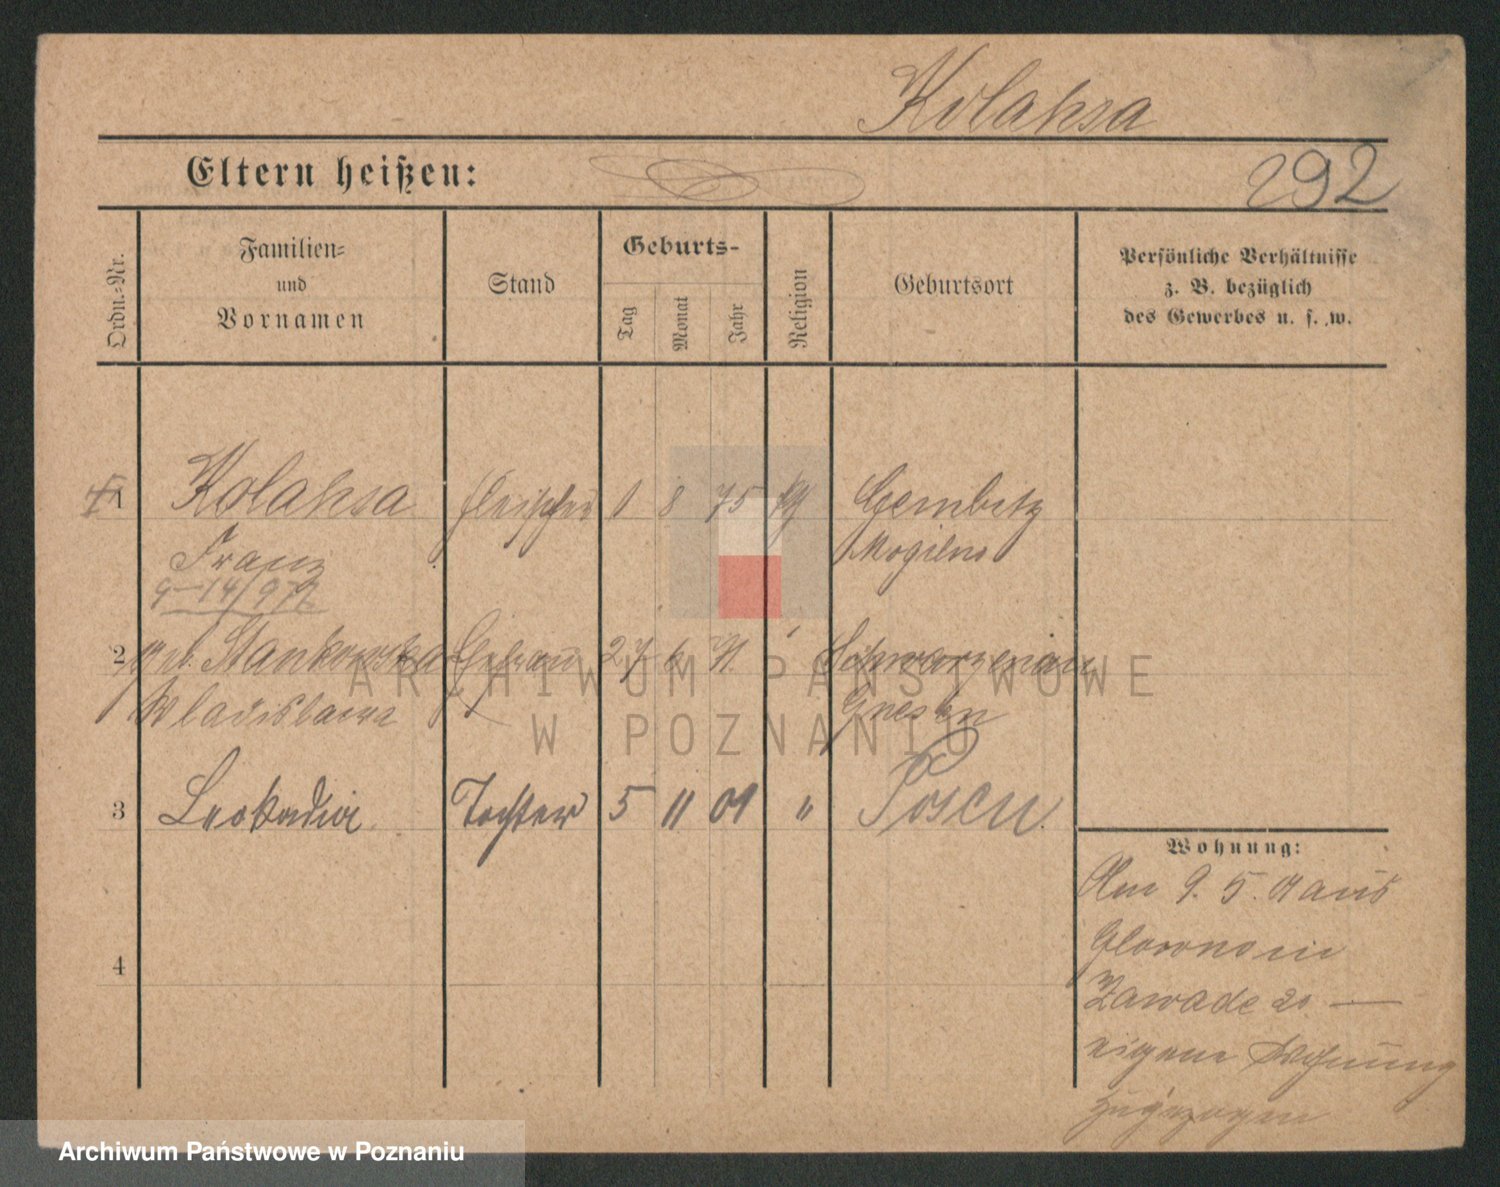 Kolaksa
Eltern heißen:
292
Ordn.-Nr.
Familien-
und
Vornamen
Stand
Geburts-
Tag
Monat
Jahr
Religion
Geburtsort
Persönliche Verhältnisse
z. B. bezüglich
des Gewerbes u. s. w.
1 Kolaksa Fleischer 1 8 75 Gembitz
Franz Mogilno
9-14/97
2 geb. Stankowska Ehefrau 27 6 71 Schwarzenau
Wladislawa Gnesen
3 Leokadia Tochter 5 11 01 " Posen
4
Wohnung:
Am 9. 5. 01 aus
Glowno in
Zawade 20 —
eigene Wohnung
zugezogen
ARCHIWUM PAŃSTWOWE
W POZNANIU
Archiwum Państwowe w Poznaniu